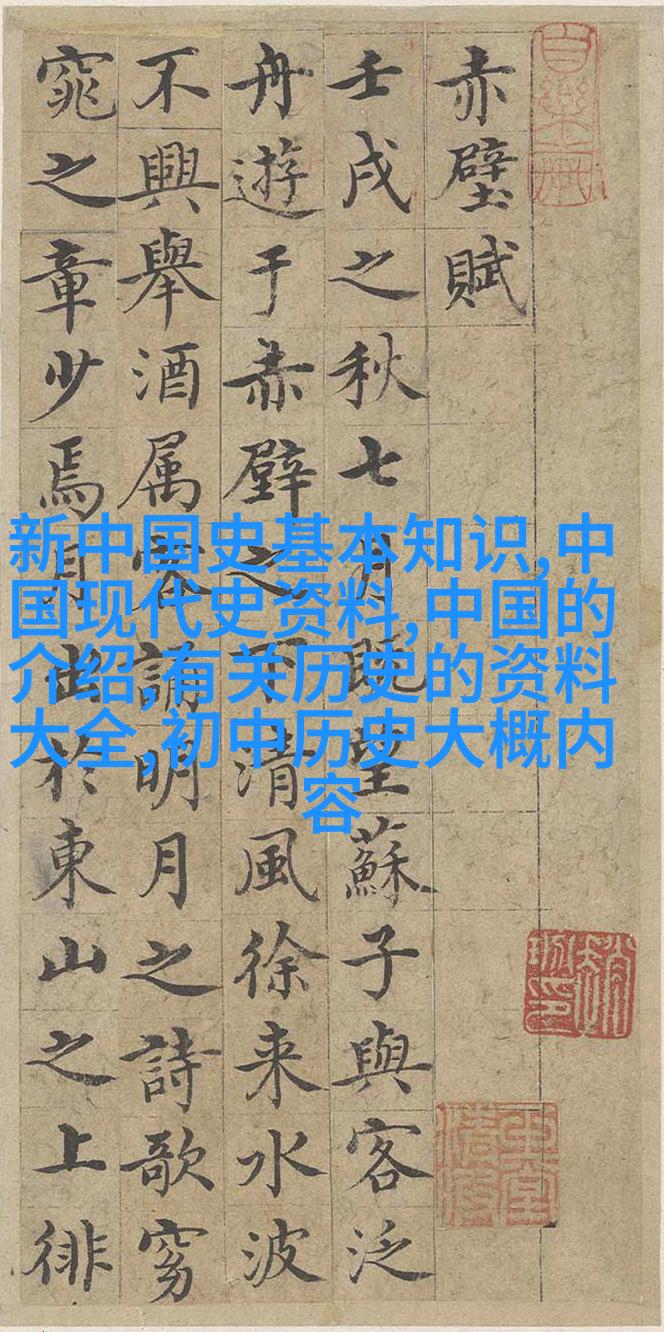 赤壁賦
壬戌之秋七月既望蘇子與客泛
舟遊于赤壁之下清風徐来水波
不興舉酒属客誦明月之詩歌窈
窕之章少焉月出於東山之上徘
新中国史基本知识,中
国现代史资料,中国的
介绍,有关历史的资料
大全,初中历史大概内
容